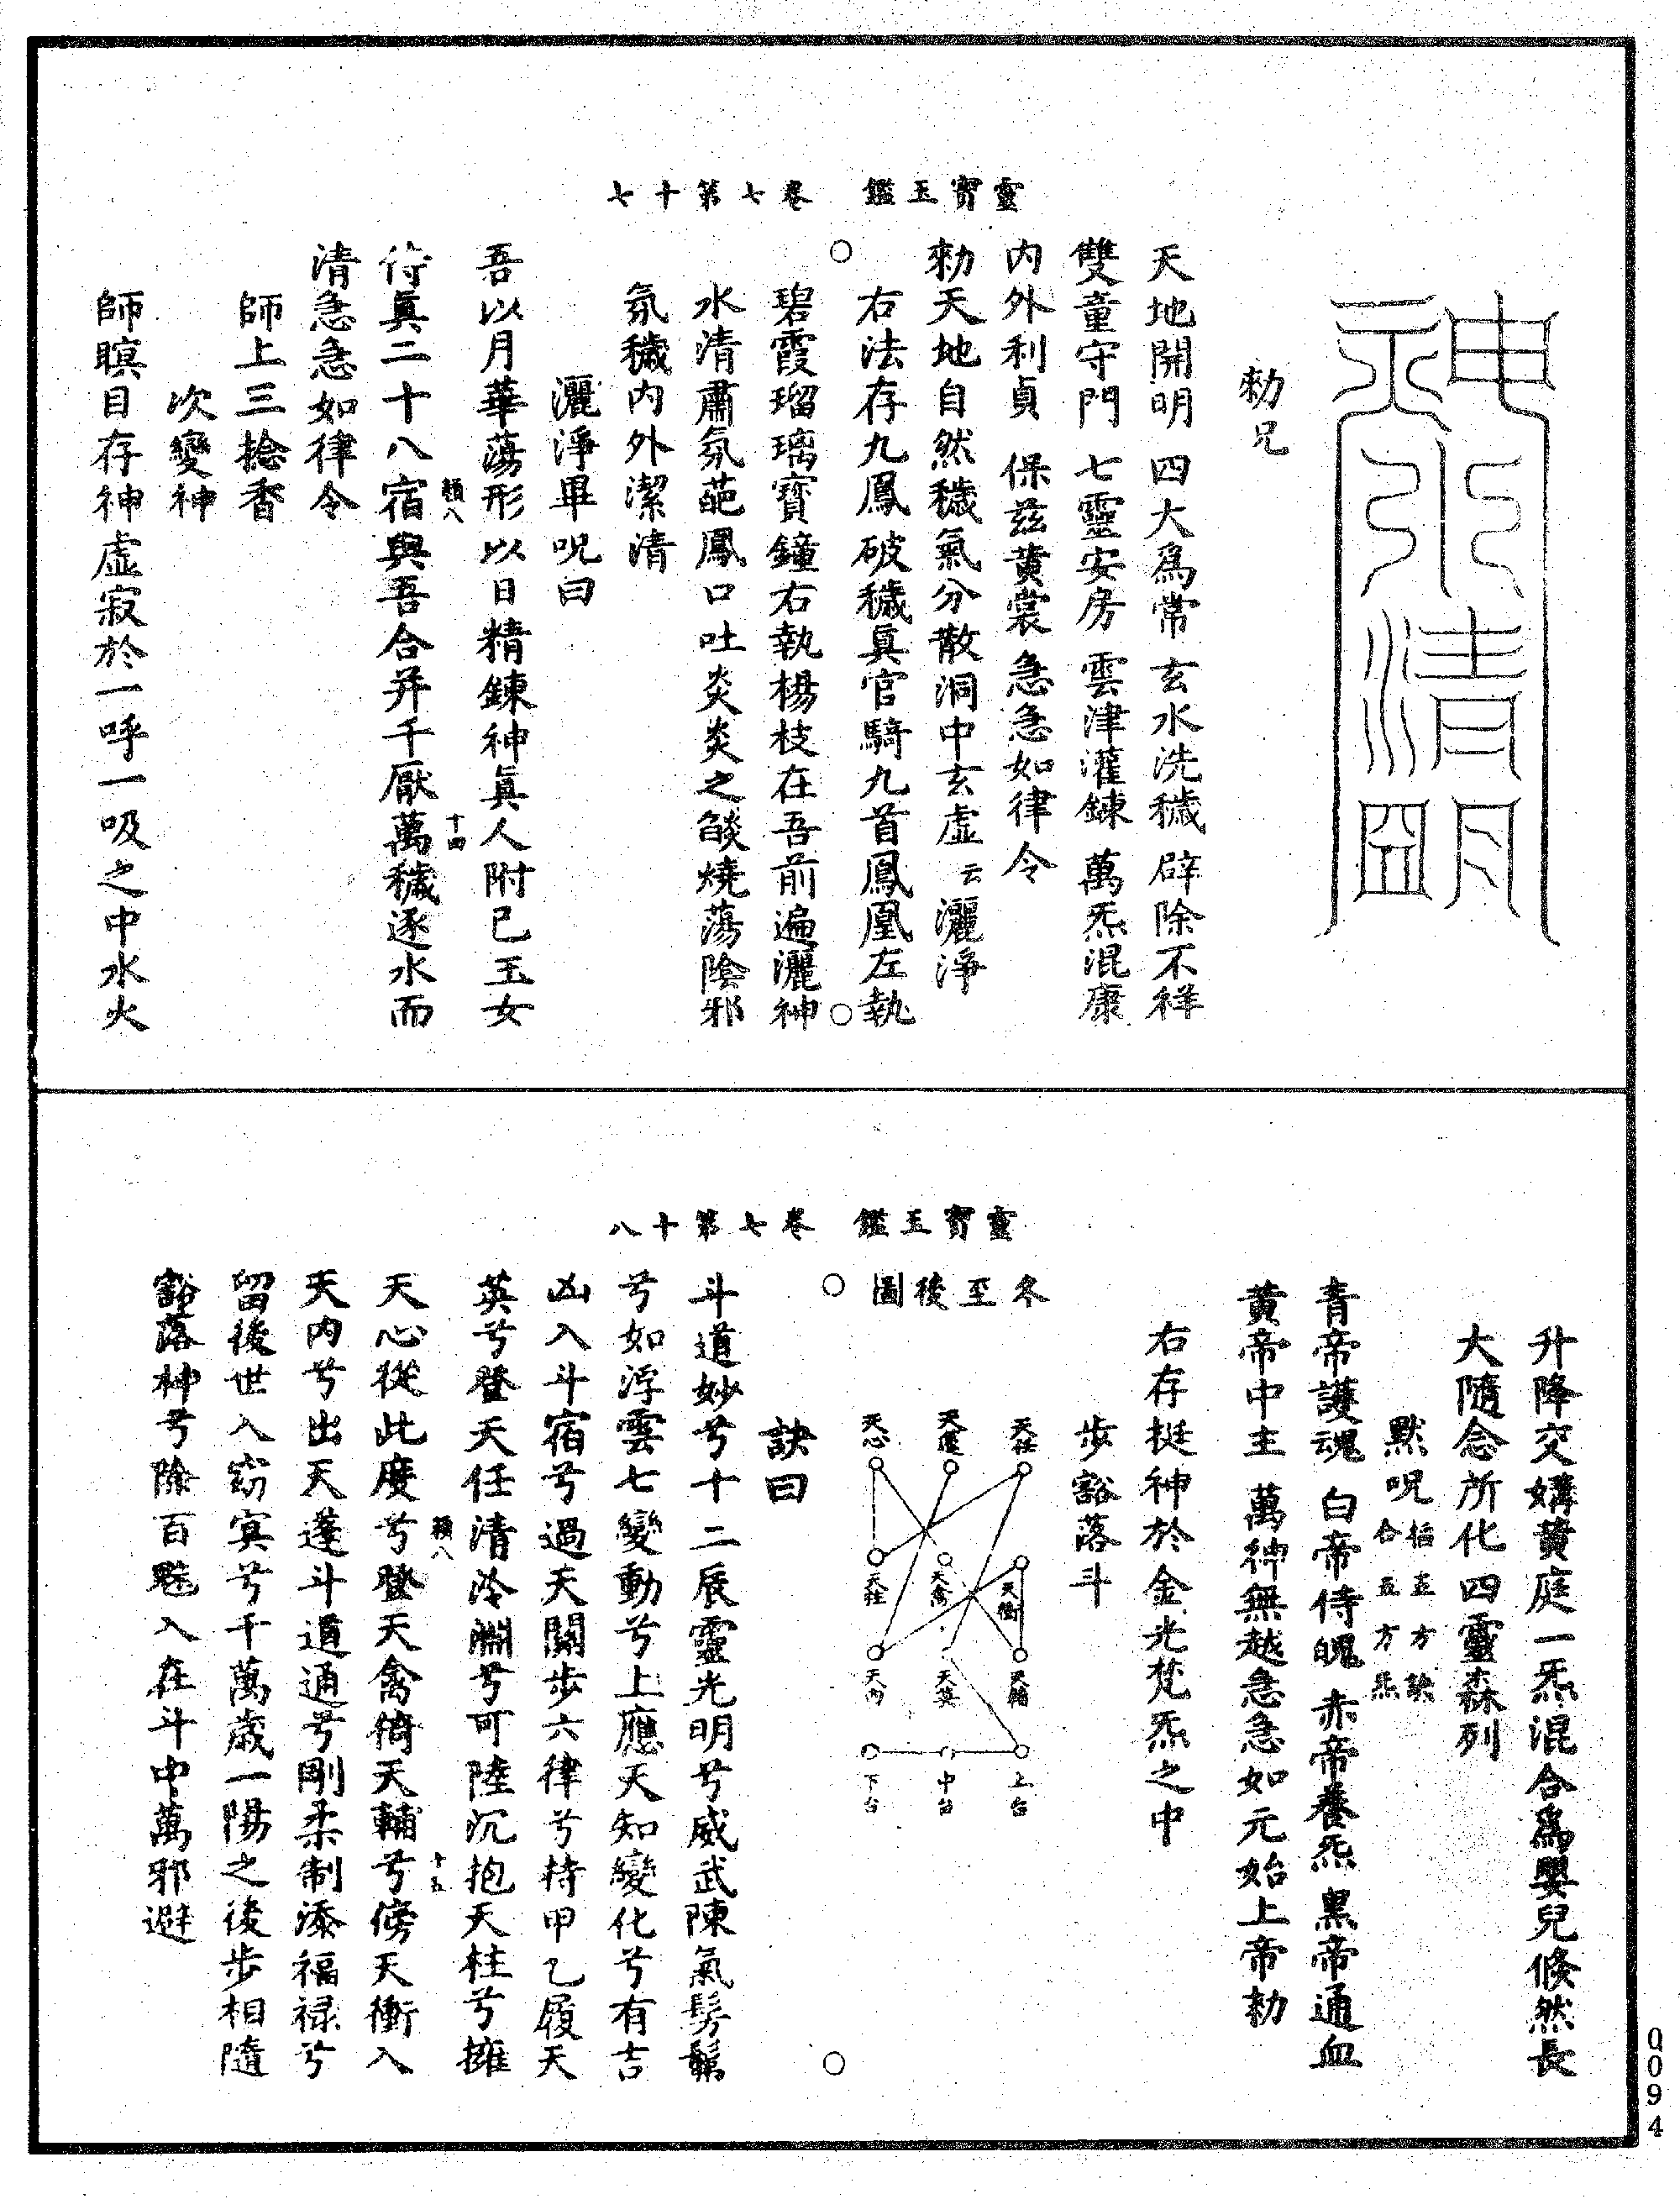 靈寶玉鑑 卷七第十七
神水清明
勑兄
天地開明 四大爲常 玄水洗穢 辟除不祥
雙童守門 七靈安房 雲津灌鍊 萬炁混康
內外利貞 保茲黃裳 急急如律令
勑天地自然穢氣分散洞中玄虛云灑淨
右法存九鳳破穢眞官騎九首鳳凰左執
碧霞瑠璃寶鐘右執楊枝在吾前遍灑神
水清肅氛葩鳳口吐炎炎之燄燒蕩陰邪
氛穢內外潔清
灑淨畢呪曰
吾以月華蕩形以日精鍊神眞人附己玉女
侍眞二十八宿與吾合并千厭萬穢逐水而
清急急如律令
師上三捻香
次變神
師瞑目存神虛寂於一呼一吸之中水火
升降交媾黃庭一炁混合爲嬰兒倏然長
大隨念所化四靈森列
默呪掐五方訣合五方炁
青帝護魂 白帝侍魄 赤帝養炁 黑帝通血
黃帝中主 萬神無越急急如元始上帝勑
右存挺神於金光梵炁之中
步豁落斗
靈寶玉鑑 卷七第十八
冬至後圖
天任 天蓬 天心
天衝 天禽 天柱
天輔 天英 天內
上台 中台 下台
訣曰
斗道妙兮十二辰靈光明兮威武陳氣髣髴
兮如浮雲七變動兮上應天知變化兮有吉
凶入斗宿兮過天關步六律兮持甲乙履天
英兮登天任清泠淵兮可陸沉抱天柱兮擁
天心從此度兮登天禽倚天輔兮傍天衝入
天內兮出天蓬斗道通兮剛柔制添福祿兮
留後世入窈冥兮千萬歲一陽之後步相隨
豁落神兮除百魅入在斗中萬邪避
頼八
十四
頼八
十五
0094